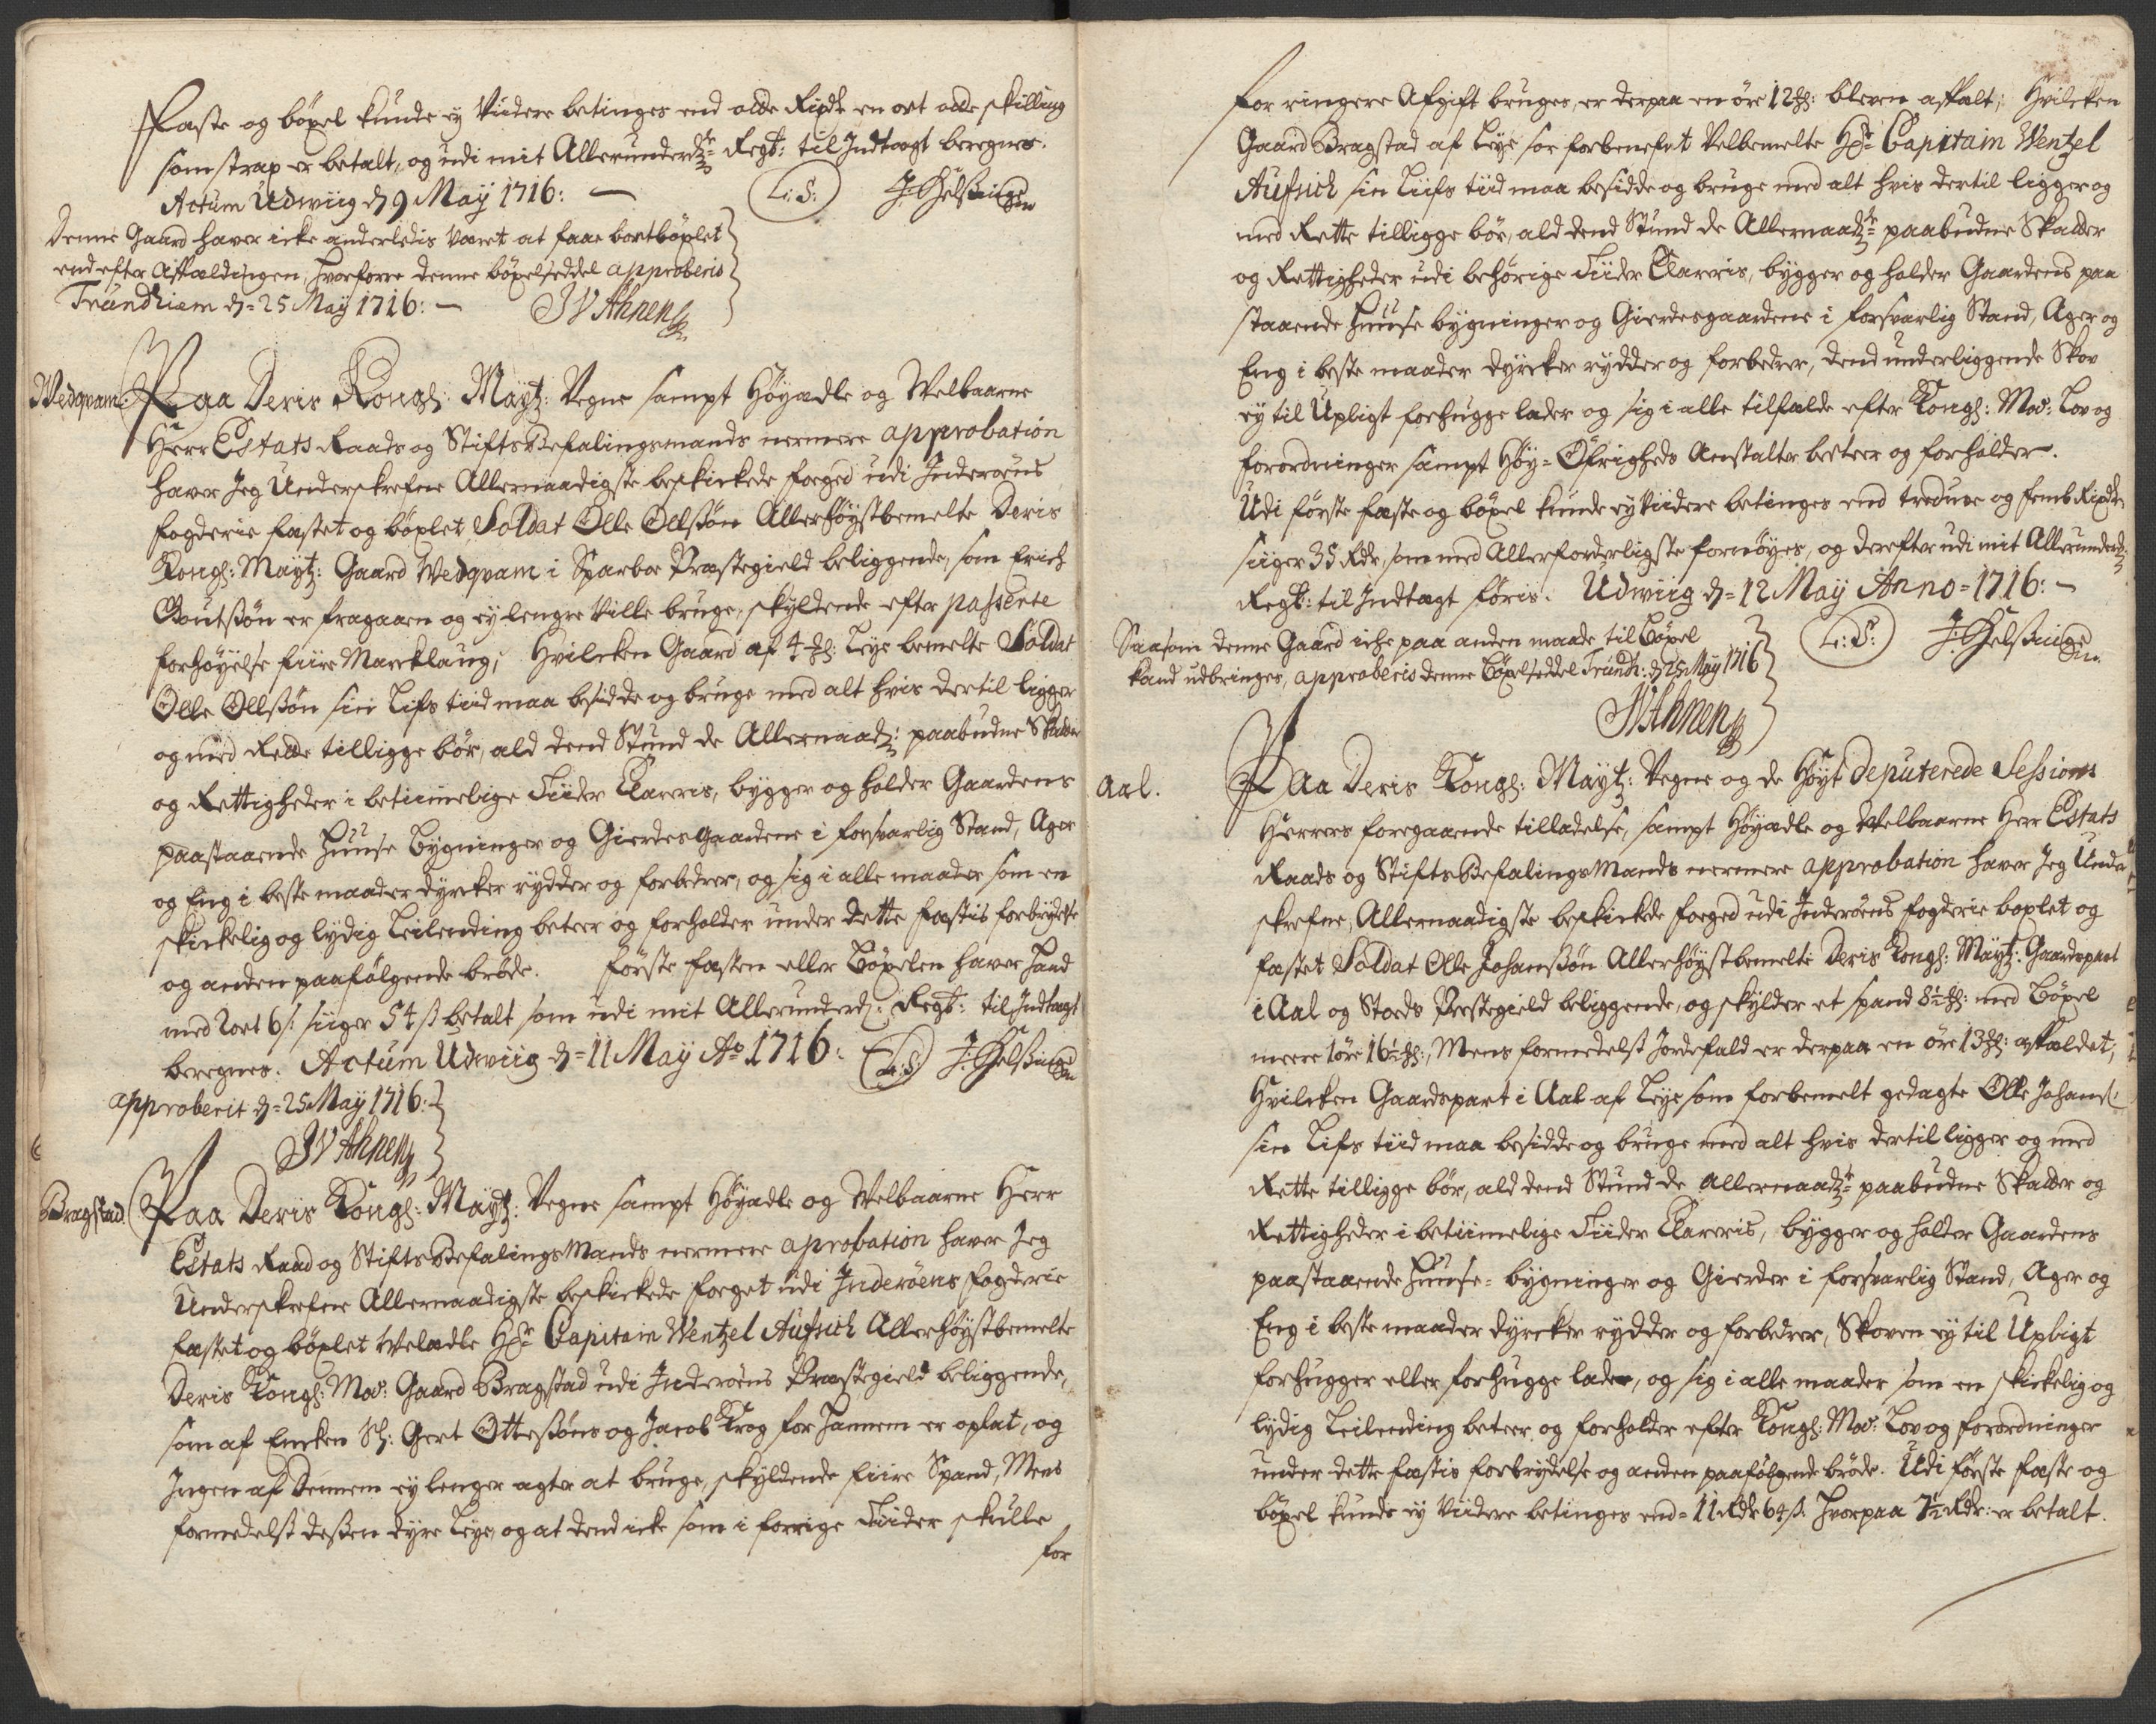 Fæste og böxel kunde ey Viidere betinges end otte Rixdr en ort otte skilling
som strax er betalt, og udi mit Allerunderd: Regb: til Indtægt beregnes.
Actum Udwiig d 9 May 1716: L:S: J: Helsing
Denne Gaard haver icke anderledis været at faae bortböxlet
end efter Affældingen, hvorforre denne böxelseddel approberis
Trundhiem d= 25 May 1716: JVAhnen
Wedqvam
Paa Deris Kongl: Mayt: Vegne sampt Höyædle og Welbaarne
Herr Estats Raads og Stifts Befalingsmands nermere approbation
haver Jeg Underskrefne Allernaadigste beskickede foeged udi Inderöens
fogderie fæstet og böxlet Soldat Olle Ollssön Allerhöystbemelte Deris
Kongl: Mayt: Gaard Wedqvam i Sparboe Præstegield beliggende, som Erich
er fragaaen og ey lengre Ville bruge, skyldende efter passerte
forhöyelse fiire Marcklaug; Hvilcken Gaard af Leye bemelte Soldat
Olle Ollssön sin Lifs tiid maa besidde og bruge med alt hvis dertil ligger
og med Rette tilligge bör, ald dend Stund de Allernaad: paabudne Skatter
og Rettigheder i betiimelige Tiider Clareris, bygger og holder Gaardens
paastaaende Huuse Bygninger og Gierdesgaardene i forsvarlig Stand, Ager
og Eng i beste maader dyrcker rydder og forbedrer, og sig i alle maader som en
skickelig og lydig Leilending beteer og forholder under dette fæstis forbrydelse
og anden paafölgende bröde. Förste fæsten eller Böxelen haver hand
med 2 ort 6 s: siiger 54 s betalt som udi mit Allerunderd: Regb: til Indtægt
beregnes. Actum Udwiig d= 11 May Ao 1716: L:S: J: Helsing
approberit d= 25 May 1716:
JVAhnen
Bragstad.
Paa Deris Kongl: Mayt: Vegne sampt Höyædle og Welbaarne Herr
Estats Raad og Stifts Befalings Mands nermere aprobation haver Jeg
Underskrefne Allernaadigste beskickede foeget udi Inderöens fogderie
fæstet og böxlet Welædle Hr Capitain Wentzel Aufsich Allerhöystbemelte
Deris Kongl: May: Gaard Bragstad udi Inderöens Præstegield beliggende,
som af Encken Sl: Gert Ottessöns og Jacob Krog for hannem er oplat, og
Ingen af Dennem ey lenger agter at bruge, skyldende fiire Spand, Mens
formedelst dessen dyre Leye, og at dend icke som i forrige Tiider skulle
for
for ringere Afgift bruges, er derpaa en öre 12 bleven affalt; Hvilcken
Gaard Bragstad af Leye som forbenefnt Velbemelte Hr Capitain Wentzel
Aufsich sin Liifs tiid maa besidde og bruge med alt hvis dertil ligger og
med Rette tilligge bör, ald dend Stund de Allernaad: paabudne Skatter
og Rettigheder udi behörige Tiider Clareris, bygger og holder Gaardens paa
staaende Huuse bygninger og Gierdesgaardene i forsvarlig Stand, Ager og
Eng i beste maader dyrcker rydder og forbedrer, dend underliggende Skov
ey til Upligt forhugge lader og sig i alle tilfælde efter Kongl: May: Lov og
forordninger sampt Höy=Öfrigheds Anstalter beteer og forholder.
Udi förste fæste og böxel kunde ey Viidere betinges end tredive og femb Rixdr
siiger 35 Rdr, som med Allerforderligste fornöyes, og derefter udi mit Allerunderd:
Regb: til Indtægt föris. Udwiig d= 12 May Anno= 1716:
L:S: J: Helsing
Saasom denne Gaard iche paa anden maade til Böxel
kand udbringes, approberis denne Böxelseddel Trundh: d 25 May 1716
JVAhnen
Aal.
Paa Deris Kongl: Mayt: Vegne og de Höyt deputerede Sessions
Herrers foregaaende tilladelse, sampt Höyædle og Welbaarne Herr Estats
Raads og Stifts Befalings Mands nermere approbation haver Jeg Under
skrefne, Allernaadigste beskickede foeged udi Inderöens fogderie boxlet og
fæstet Soldat Olle Johanssön Allerhöystbemelte Deris Kongl: Mayt: Gaardspart
i Aal og Stods Prestegield beliggende, og skylder et spand 8½ med Böxel
meere 1 öre 16½, Mens formedelst Jordefald er derpaa en öre 13 affældet;
Hvilcken Gaardspart i Aal af Leye som forbemelt gedagte Olle Johans:
sin Lifs tiid maa besidde og bruge med alt hvis dertil ligger og med
Rette tilligge bör, ald dend Stund de allernaad: paabudne Skatter og
Rettigheder i betiimelige Tiider Clareris, bygger og holder Gaardens
paastaaende Huuse= bygninger og Gierder i forsvarlig Stand, Ager og
Eng i beste maader dyrcker rydder og forbedrer, Skoven ey til Upligt
forhugger eller forhugge lader, og sig i alle maader som en skickelig og
lydig Leilending beteer og forholder efter Kongl: May: Lov og forordninger
under dette fæstis forbrydelse og anden paafölgende bröde. Udi förste fæste og
böxel kunde ey Viidere betinges end= 11 Rdr 64 s. hvorpaa 7½ Rdr: er betalt.